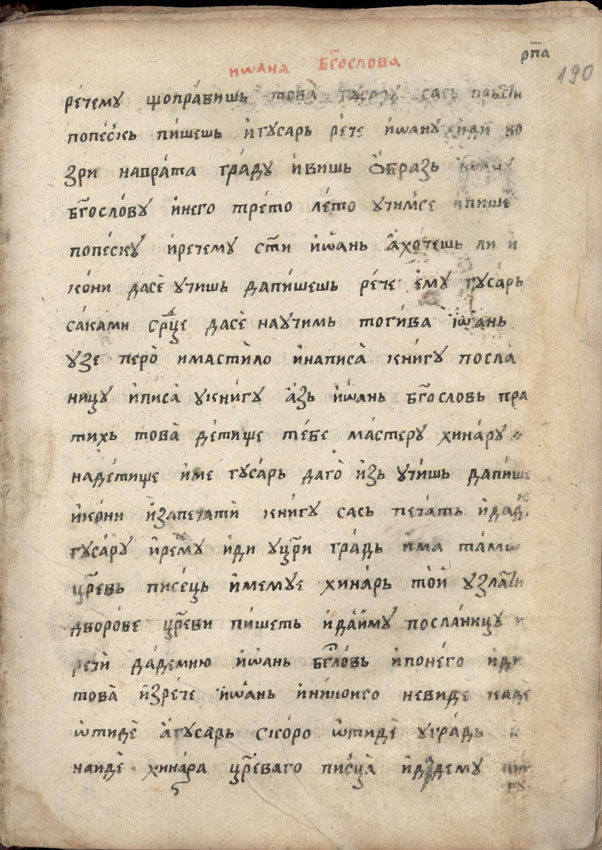 рп҃а
190
иѡана бг҃ослова
речему що правишь това гусару сась
попесѣкь пишешь и гусарь рече иѡану иди во
зри на врата граду и вишь ѻбразь
бг҃ослову и него трето лето учимсе и пише
попеску и рече му ст҃и иѡань а хочешь ли и
кони да се учишь да пишешь рече ему гусарь
са ками срⷣце да се научимь тогива иѡань
узе перо и мастило и написа книгу посла
ницу и писа у книгу азь иѡань бг҃ословь пра
тихь това детище тебе мастеру хинару
на детище име гусарь да го изь учишь да пише
икони и запечати книгу сась печать и даде
гусару и рече му иди у цр҃и градь има тамь
цр҃евь писець именуе хинарь той у злати
дворове цр҃еви пишеть и дай му посланицу
рети да демию иѡань бг҃словь и по него иди
това изрече иѡань и никоиго не виде каде
ѡтиде а гусарь скоро ѡтиде у градь
наиде хинара цр҃еваго писца и даде му